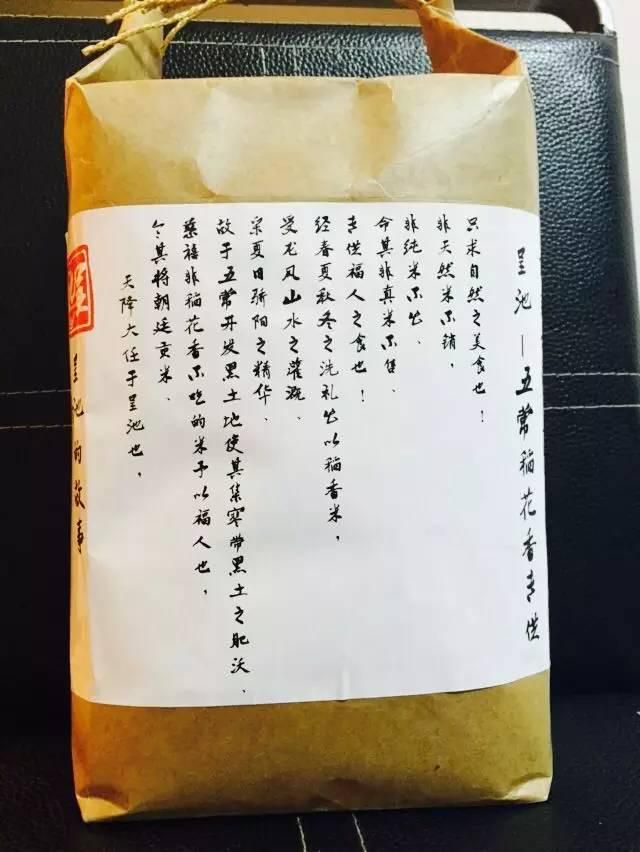 呈池的故事
天降大任于呈池也，
令其将朝廷贡米、
慈禧非稻花香不吃的米予以福人也，
故于五常开发黑土地使其集寒带黑土之肥沃、
宗夏日骄阳之精华、
受龙凤山水之灌溉、
经春夏秋冬之洗礼出以稻香米，
吉供福人之食也！
命其非真米不售、
非纯米不出、
非天然米不销，
只求自然之美食也！
呈池—五常稻花香吉供